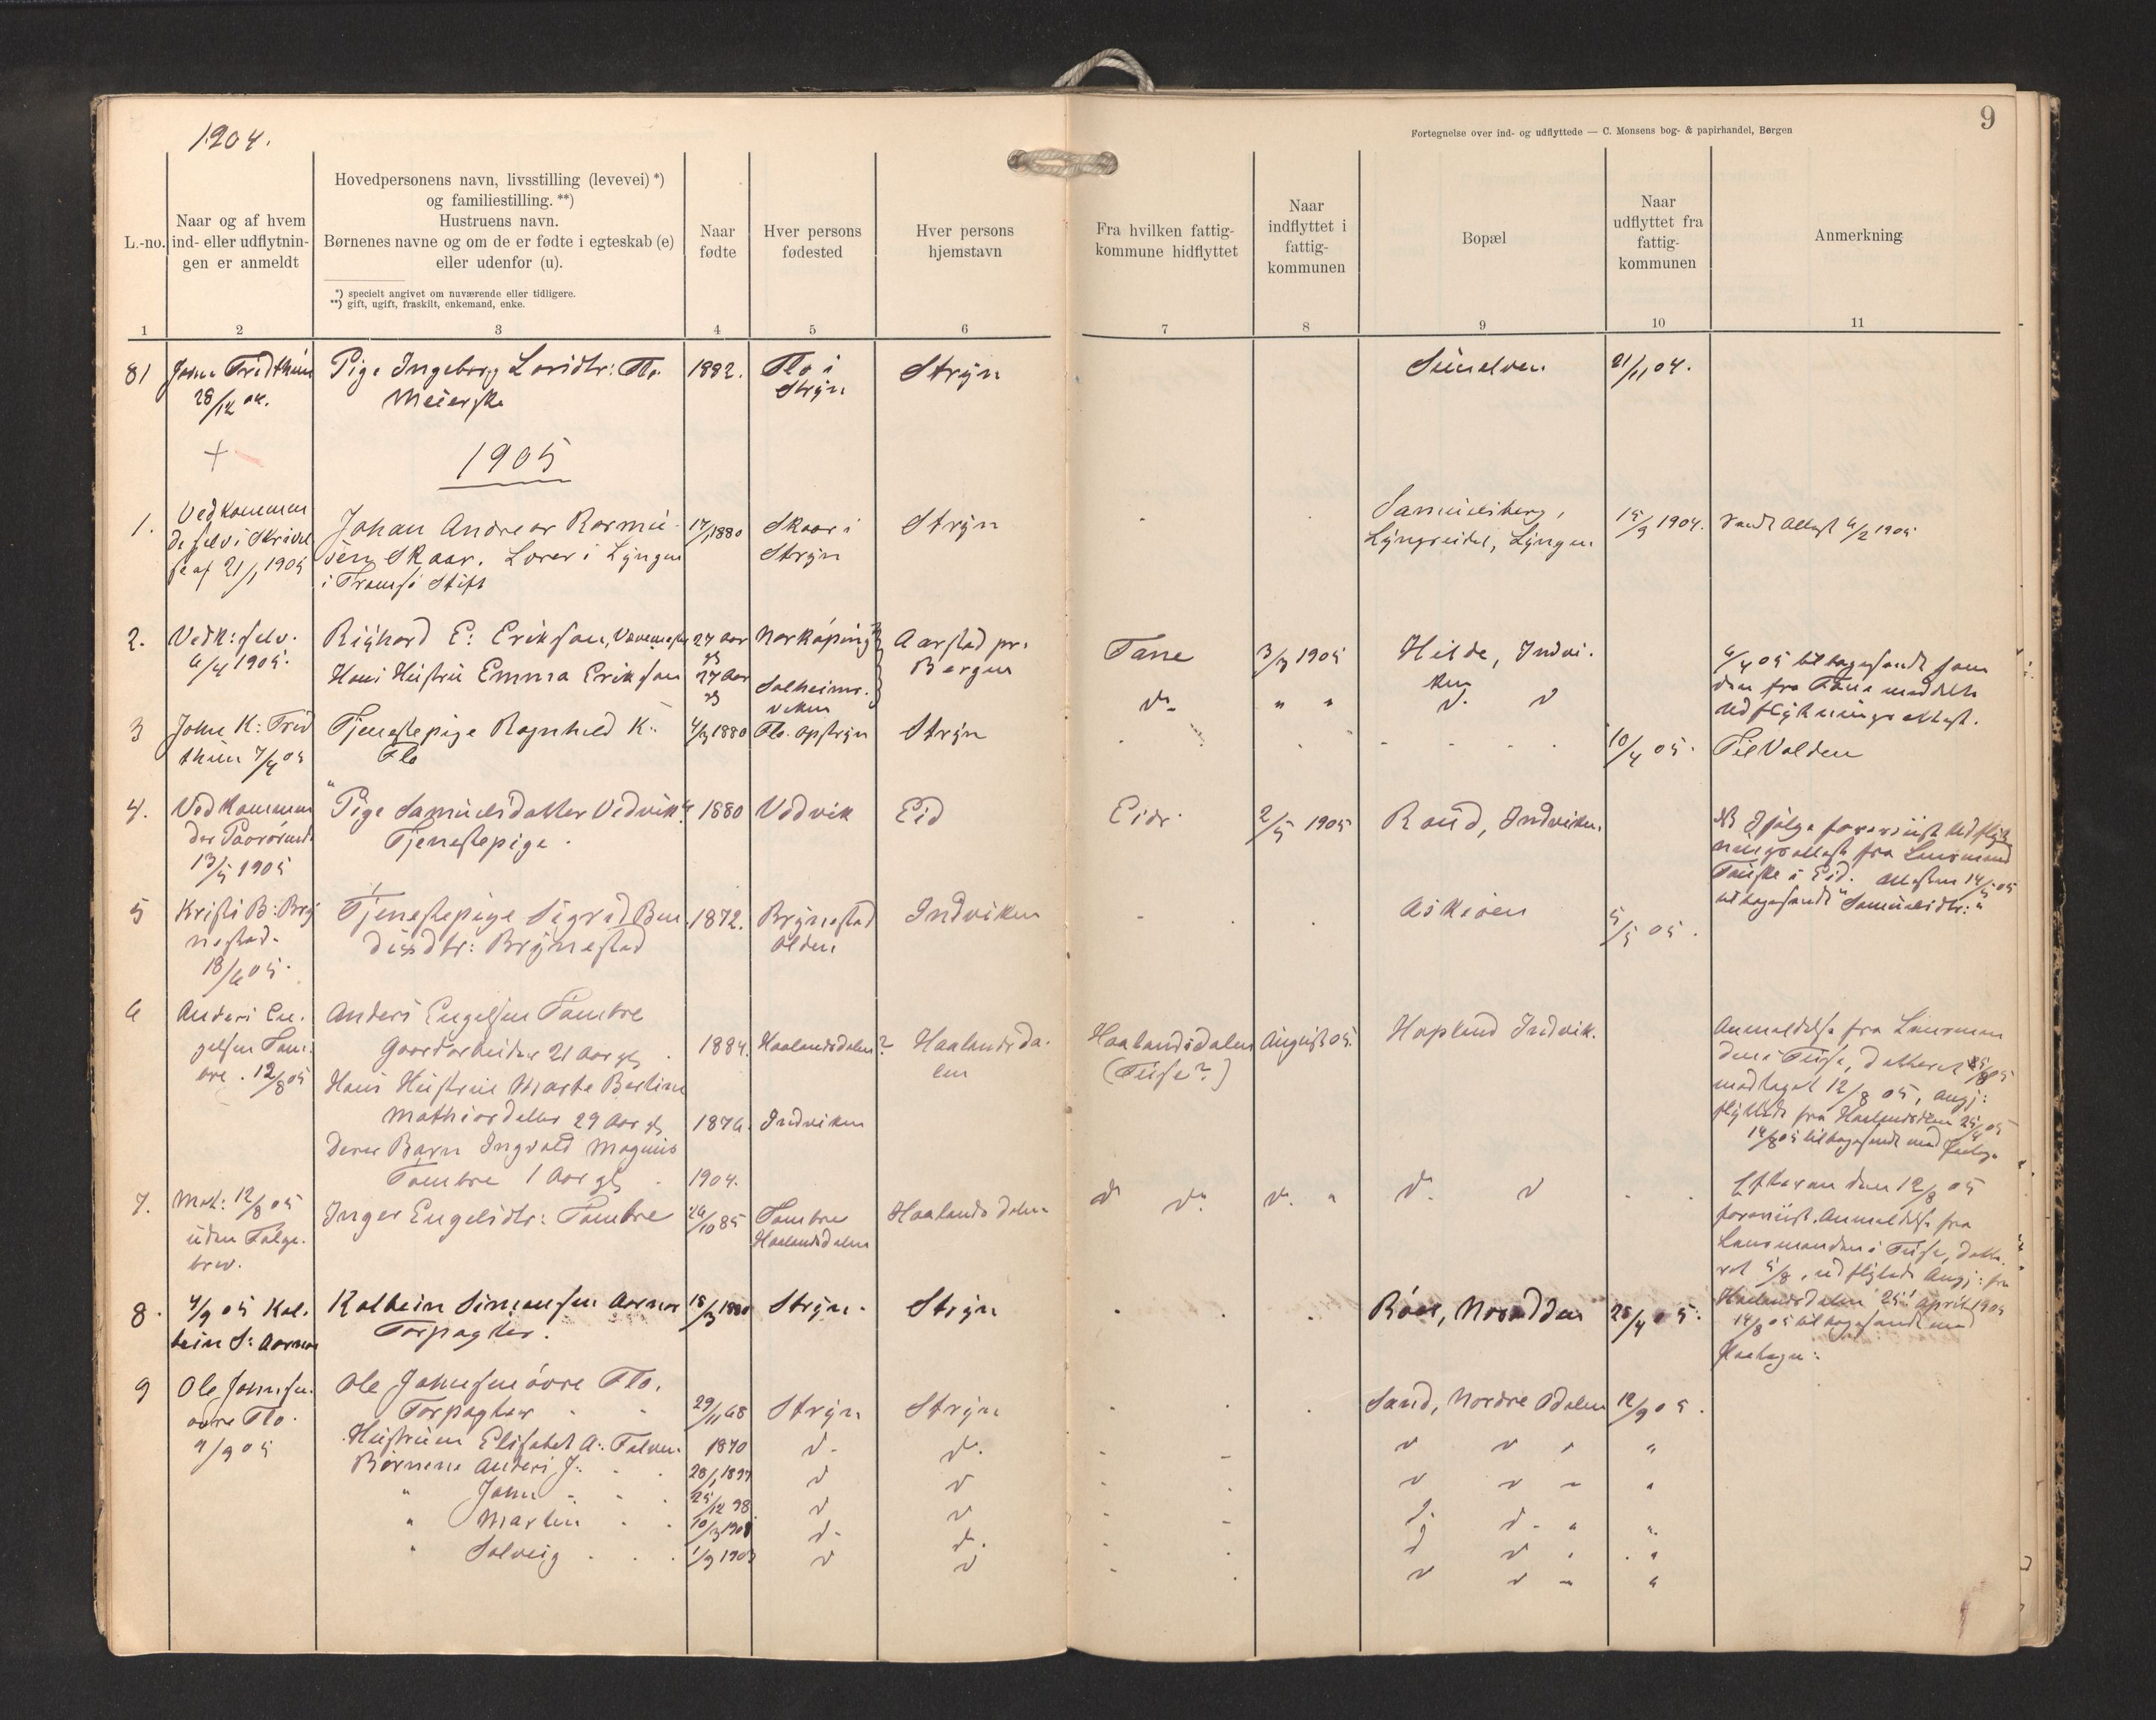 1904.
9
Fortegnelse over ind- og udflyttede — C. Monsens bog- & papirhandel, Bergen
L.-no.
Naar og af hvem
ind- eller udflytnin-
gen er anmeldt
Hovedpersonens navn, livsstilling (levevei) *)
og familiestilling. **)
Hustruens navn.
Børnenes navne og om de er fødte i egteskab (e)
eller udenfor (u).
*) specielt angivet om nuværende eller tidligere.
**) gift, ugift, fraskilt, enkemand, enke.
Naar
fødte
Hver persons
fødested
Hver persons
hjemstavn
Fra hvilken fattig-
kommune hidflyttet
Naar
indflyttet i
fattig-
kommunen
Bopæl
Naar
udflyttet fra
fattig-
kommunen
Anmerkning
1 2 3 4 5 6 7 8 9 10 11
81
28/12 04.
Pige Ingeborg
Meierske
1882.
Flo i
Stryn
Stryn
21/11 04.
1905
1.
Vedkommen
de selv i Skrivel
se af 21/1 1905
Johan Andreas Rasmu-
sen Skaar. Lærer i Lyngen
i Tromsø Stift
17/1 1880
Skaar i
Stryn
Stryn
Samuelsberg,
Lyngseidet, Lyngen
15/9 1904.
sendt Attest 6/2 1905
2.
Vedk: selv.
6/4 1905.
Righard E: Erikson,
Hans Hustru Emma Erikson
27 Aar
gl
27 Aar
gl
Norkøping
Solheims-
viken
Aarstad pr.
Bergen
Fane
do
3/3 1905
" "
Hilde, Indvi-
ken
d. d
6/4 05 tilbagesendt som
den fra Fana meddelte
Udflytningsattest.
3
John K: Trid
thun 7/4 05
Tjenestepige Ragnhild K:
Flo
4/3 1880
Flo. opstryn
Stryn
10/4 05.
Til Volden
4.
Vedkommen
der
13/5 1905
"Pige Samuelsdatter Vedvik"
Tjenestepige.
1880
Vedvik
Eid
Eid.
2/5 1905
Raud, Indviken.
Ifølge forevist Udflyt
ningsattest fra Lensmand
i Eid. Attesten 14/5 05
tilbagesendt "Samuelsdtr:"
5
Kristi B: Bry
nestad.
18/6 05.
Tjenestepige Sigrid Ben
dixdtr: Brynestad
1872.
Brynestad
Olden
Indviken
Askøen
5/5 05.
6
Anders En-
gelsen Tom-
bre. 12/8 05
Anders Engelsen Tombre
Gaardarbeider 21 Aar gl.
Hans Hustrue Marte Bertine
Mathiasdatter 29 Aar gl
Deres Barn Ingvald Magnus
Tombre 1 Aar gl.
1884.
1876.
1904.
Haalandsdalen?
Indviken
Haalandsda-
len
Haalandsdalen
(Fuse?)
August 05.
Hoplund Indvik.
Anmeldelse fra Lensman
den i Fuse, datteret 5/8 05
modtaget 12/8 05, angj:
flyttede fra Haalandsdalen 25/4 05
14/8 05 tilbagesendt med
7.
Mot: 12/8 05
uden Følge-
brev.
Inger Engelsdtr: Tombre
26/10 85
Tombre
Haalandsdalen
Haalandsdalen
d do
d. "
d. d
Efter en den 12/8 05
forevist Anmeldelse fra
Lensmanden i Fuse, datte-
ret 5/8, udflyttede Angj: fra
Haalandsdalen 25' april 1905
14/8 05 tilbagesendt med
8.
4/9 05 Kol-
bein S: Aarnes
Kolbein Simonsen Aarnes
Forpagter.
18/3 1880
Stryn.
Stryn
28/4 05.
9
Ole Johnsen
øvre Flo.
9/9 05
Ole Johnsen øvre Flo.
Forpagter
Hustruen Elisabet A:
Børnene Anders J:
" John
" Martin
" Solveig
29/11 68
1870
28/1 1897
25/12 98
10/3 1901
1/9 1903
Stryn
d.
d
d
d.
d
Stryn
d.
d
d
d.
d
Sand, Nordre Odalen
d d "
d d "
d. d. "
d d "
d d "
12/9 05.
"
"
"
"
"